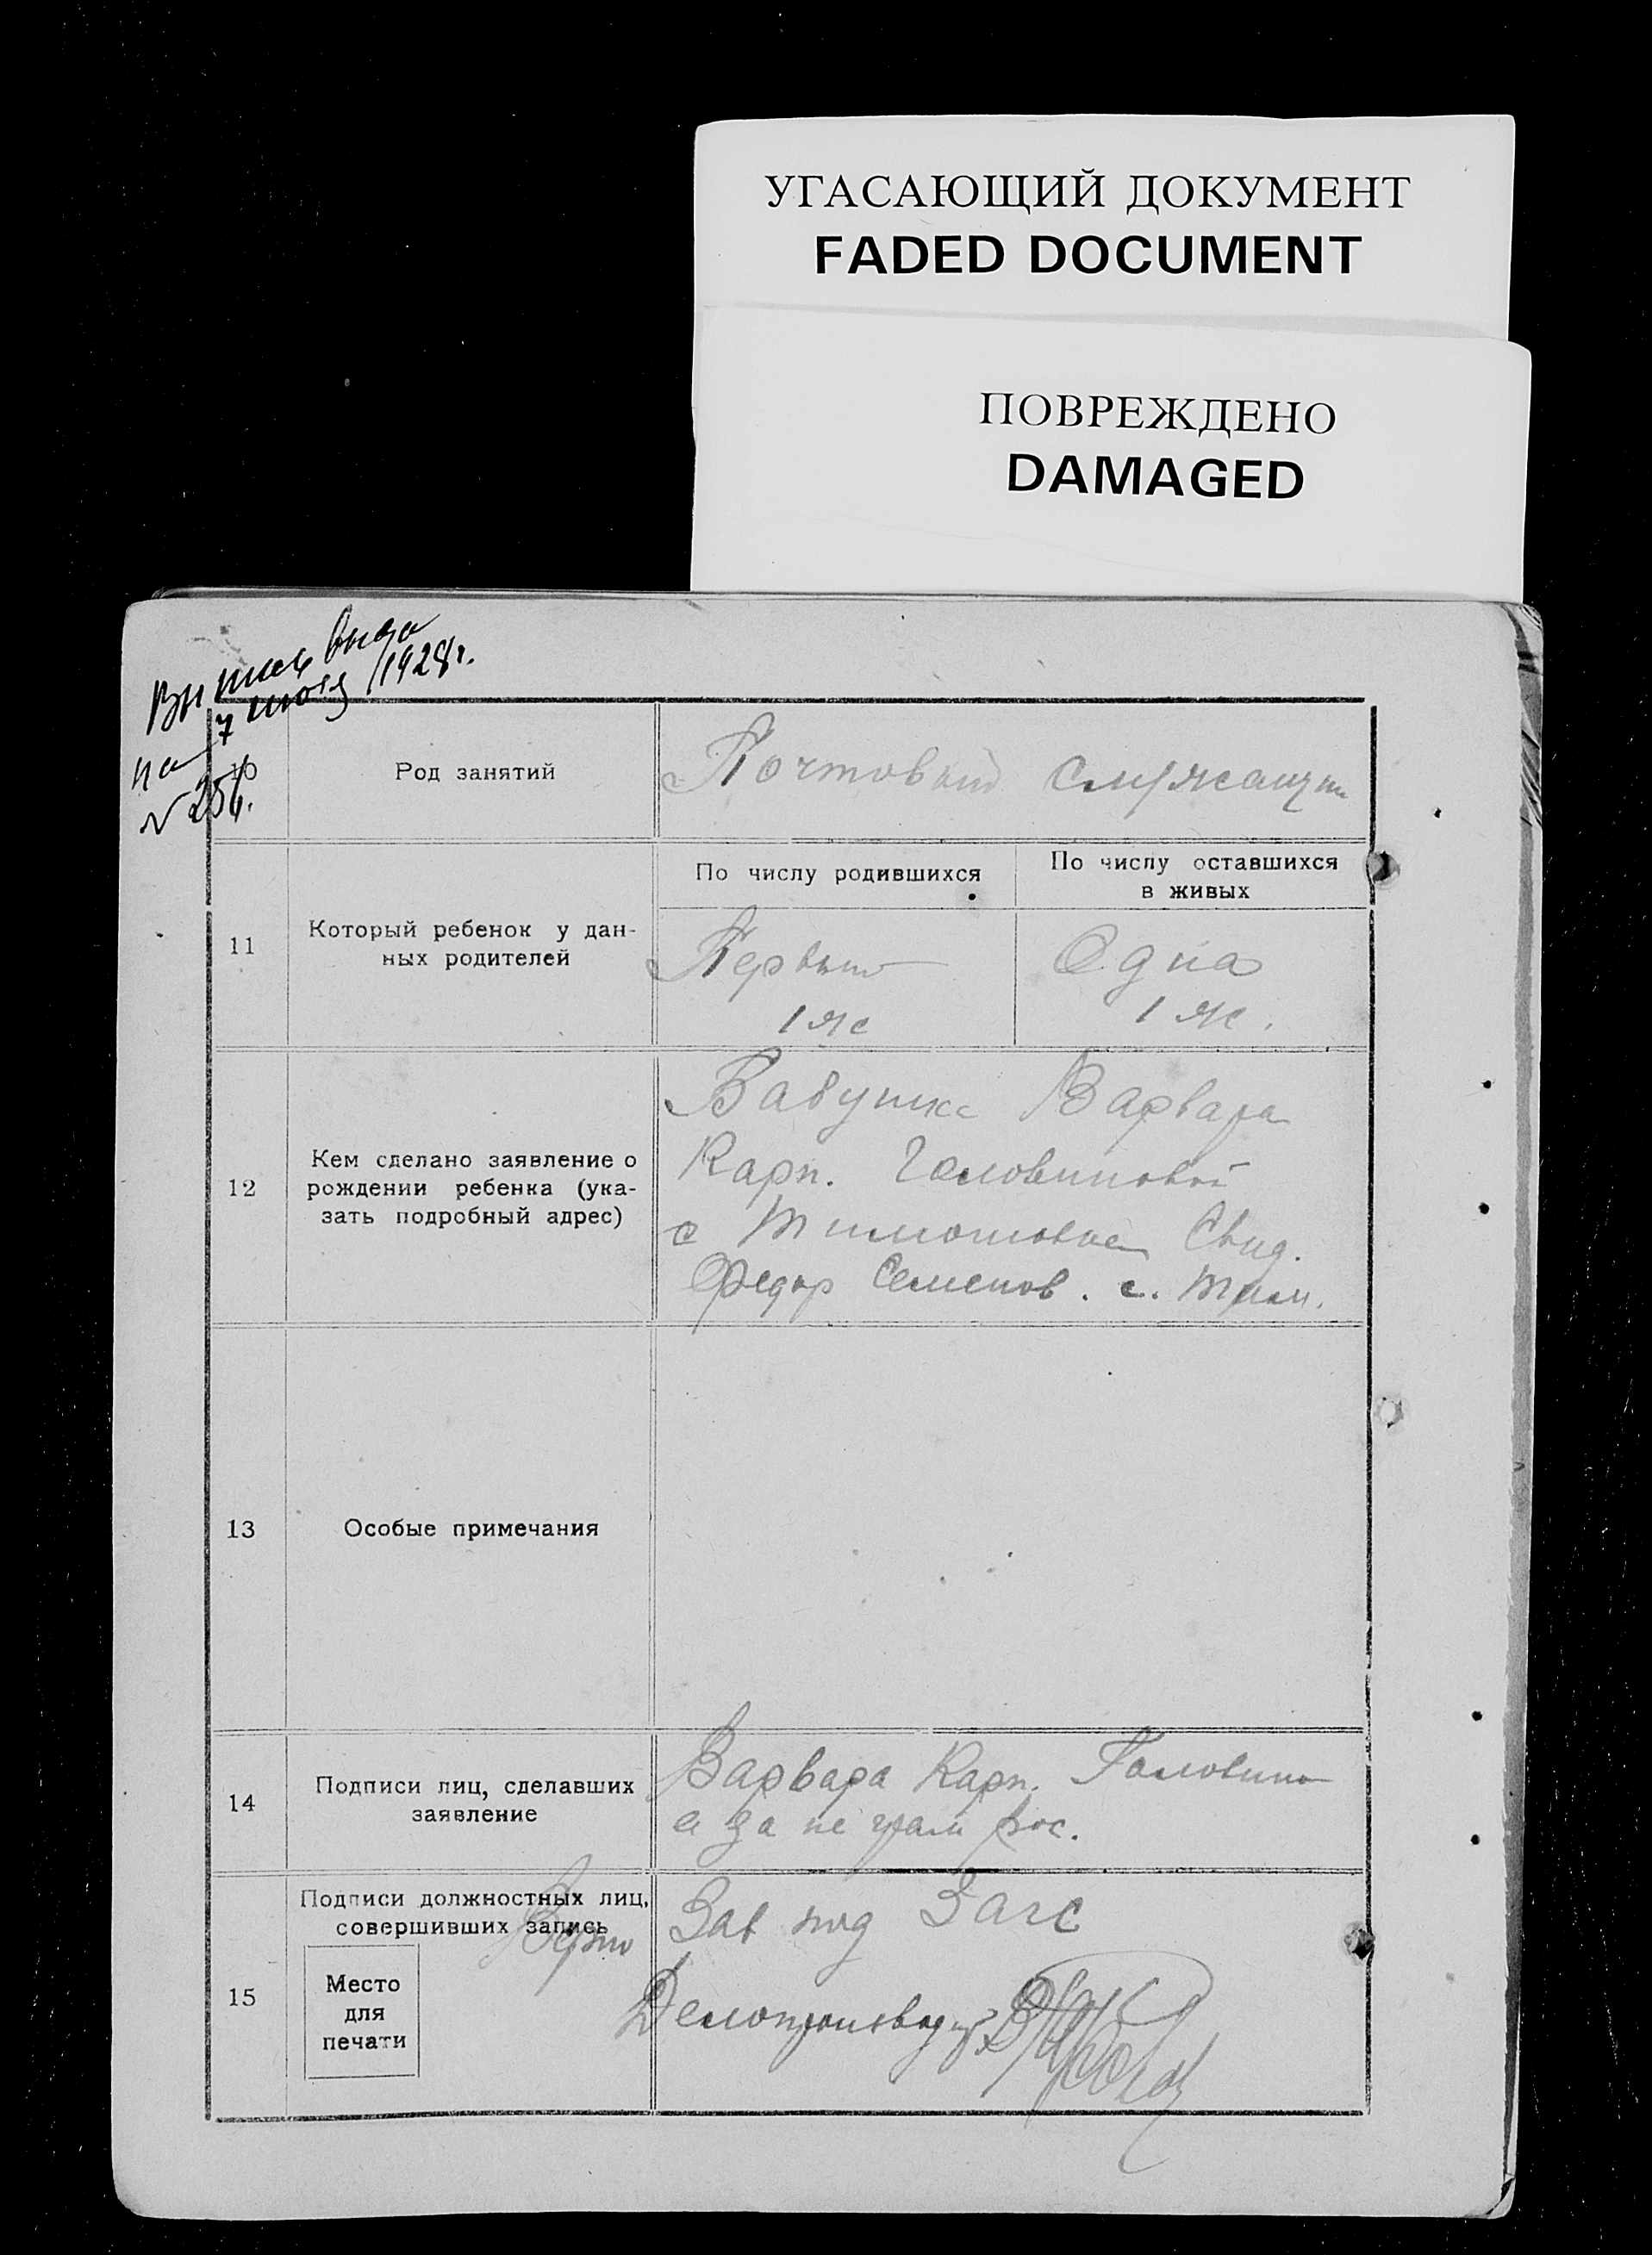 УГАСАЮЩИЙ ДОКУМЕНТ
FADED DOCUMENT
ПОВРЕЖДЕНО
DAMAGED
1928 г.
7
на
№ 256.
10
Род занятий
Почтовый служащий
11
Который ребенок у дан-
ных родителей
По числу родившихся
По числу оставшихся
в живых
Первый
Одна
1 ж
1 ж.
12
Кем сделано заявление о
рождении ребенка (ука-
зать подробный адрес)
Бабушка Варвара
Карп. Головиновой
с Свид.
Федор Семенов. с. Тим.
13
Особые примечания
14
Подписи лиц, сделавших
заявление
Варвара Карп. Головино
а за не грам рос.
15
Подписи должностных лиц,
совершивших запись
Верно
Место
для
печати
Зав под Загс
Делопроизвод